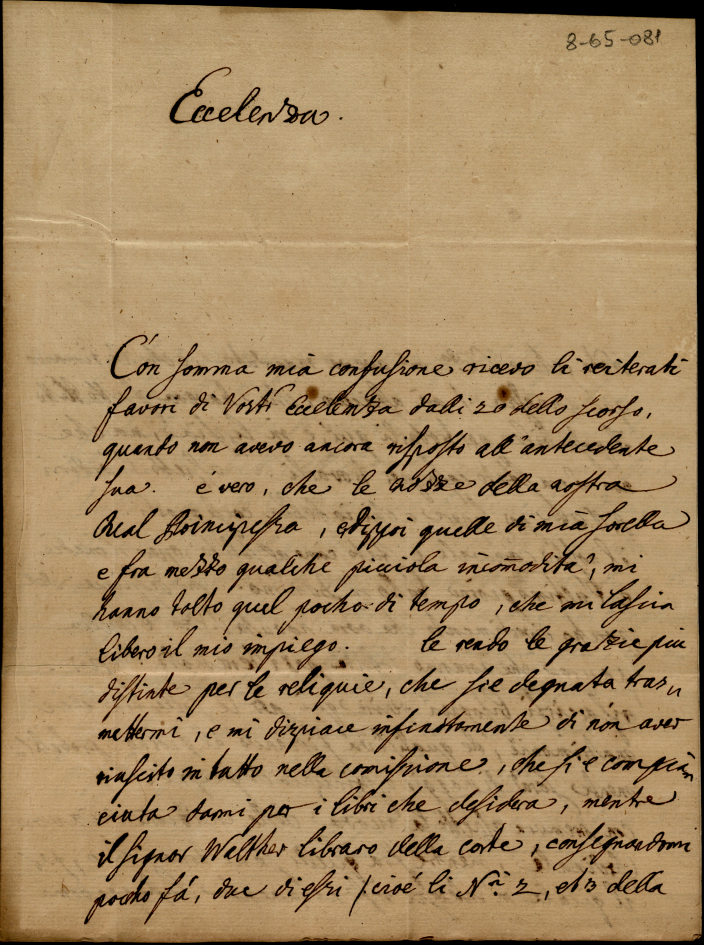 8-65-081
Eccelenza.
Con somma mia confusione ricevo li reiterati
favori di Vostr Eccelenza dalli 20 dello scorso,
quando non avevo ancora risposto all'antecedente
sua. é vero, che le nozze della nostra
Real Principessa, e dippoi quelle di mia sorella
e fra mezzo qualche picciola incom̅odita', mi
hanno tolto quel pocho di tempo, che mi lascia
libero il mio impiego. le rendo le grazie piu
distinte per le reliquie, che si e degnata tras„
mettermi, e mi dispiace infinitamente di non aver
riuscito in tutto nella comissione, che si e compia„
ciuta darmi per i libri che desidera, mentre
il signor Walther libraro della corte, consegnandomi
pocho fá, due di essi /: cioé li N.ri 2, et 3 della